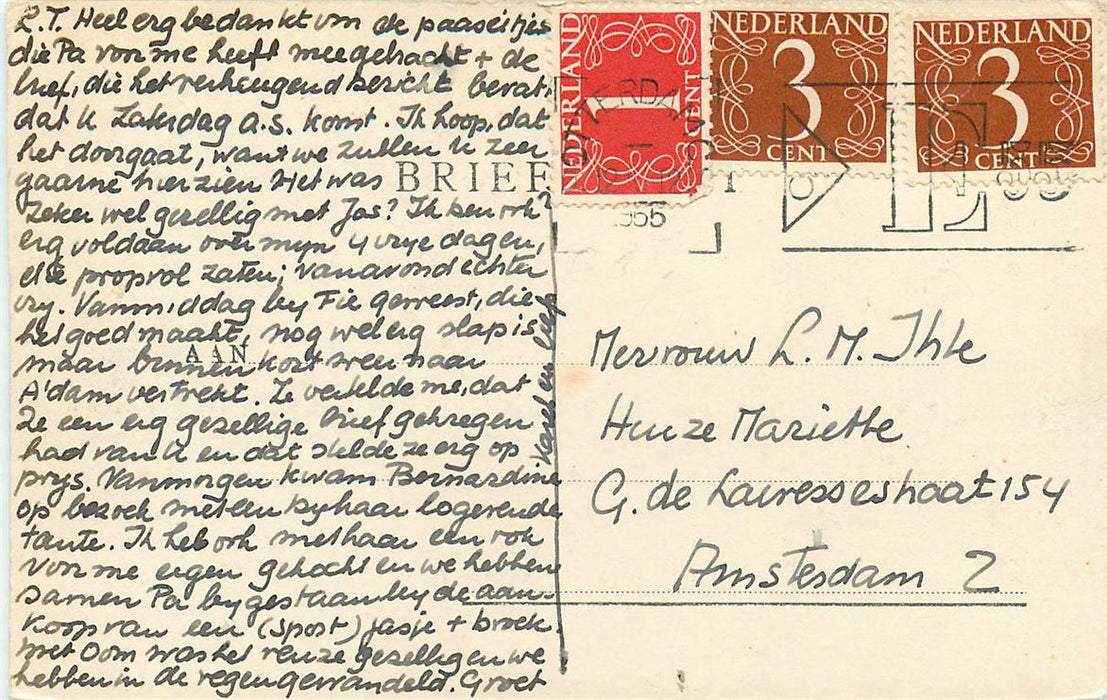 L.T. Heel erg bedankt vm de paaseitjes
die Pa voor me heeft meegebracht + de
brief, die het verheugend bericht bevat,
dat U Zaterdag a.s. komt. Ik hoop, dat
het doorgaat, want we zullen U zeer
gaarne hier zien Het was
Zeker wel gezellig met Jas? Ik ben ook
erg voldaan over myn 4 vrye dagen,
die propvol zaten; vanavond echter
vry. Vanmiddag by Fie geweest, die
het goed maakt, nog wel erg slap is
maar binnen kort weer naar
A'dam vertrekt. Ze vertelde me, dat
Ze een erg gezellige brief gekregen
had van U en dat stelde ze erg op
prys. Vanmorgen kwam Bernardine
op bezoek met een by haar logerende
tante. Ik heb ook met haar een rok
voor me eigen gekocht en we hebben
samen Pa bygestaan by de aan-
koop van een (sport) jasje + broek.
Met Oom was het reuze gezellig en we
hebben in de regen gewandeld. Groet
BRIEF
AAN
NEDERLAND
CENT
NEDERLAND
3
CENT
NEDERLAND
3
CENT
1955
Mevrouw L. M. Ihle
Huize Mariette
G. de Lairessestraat 154
Amsterdam Z